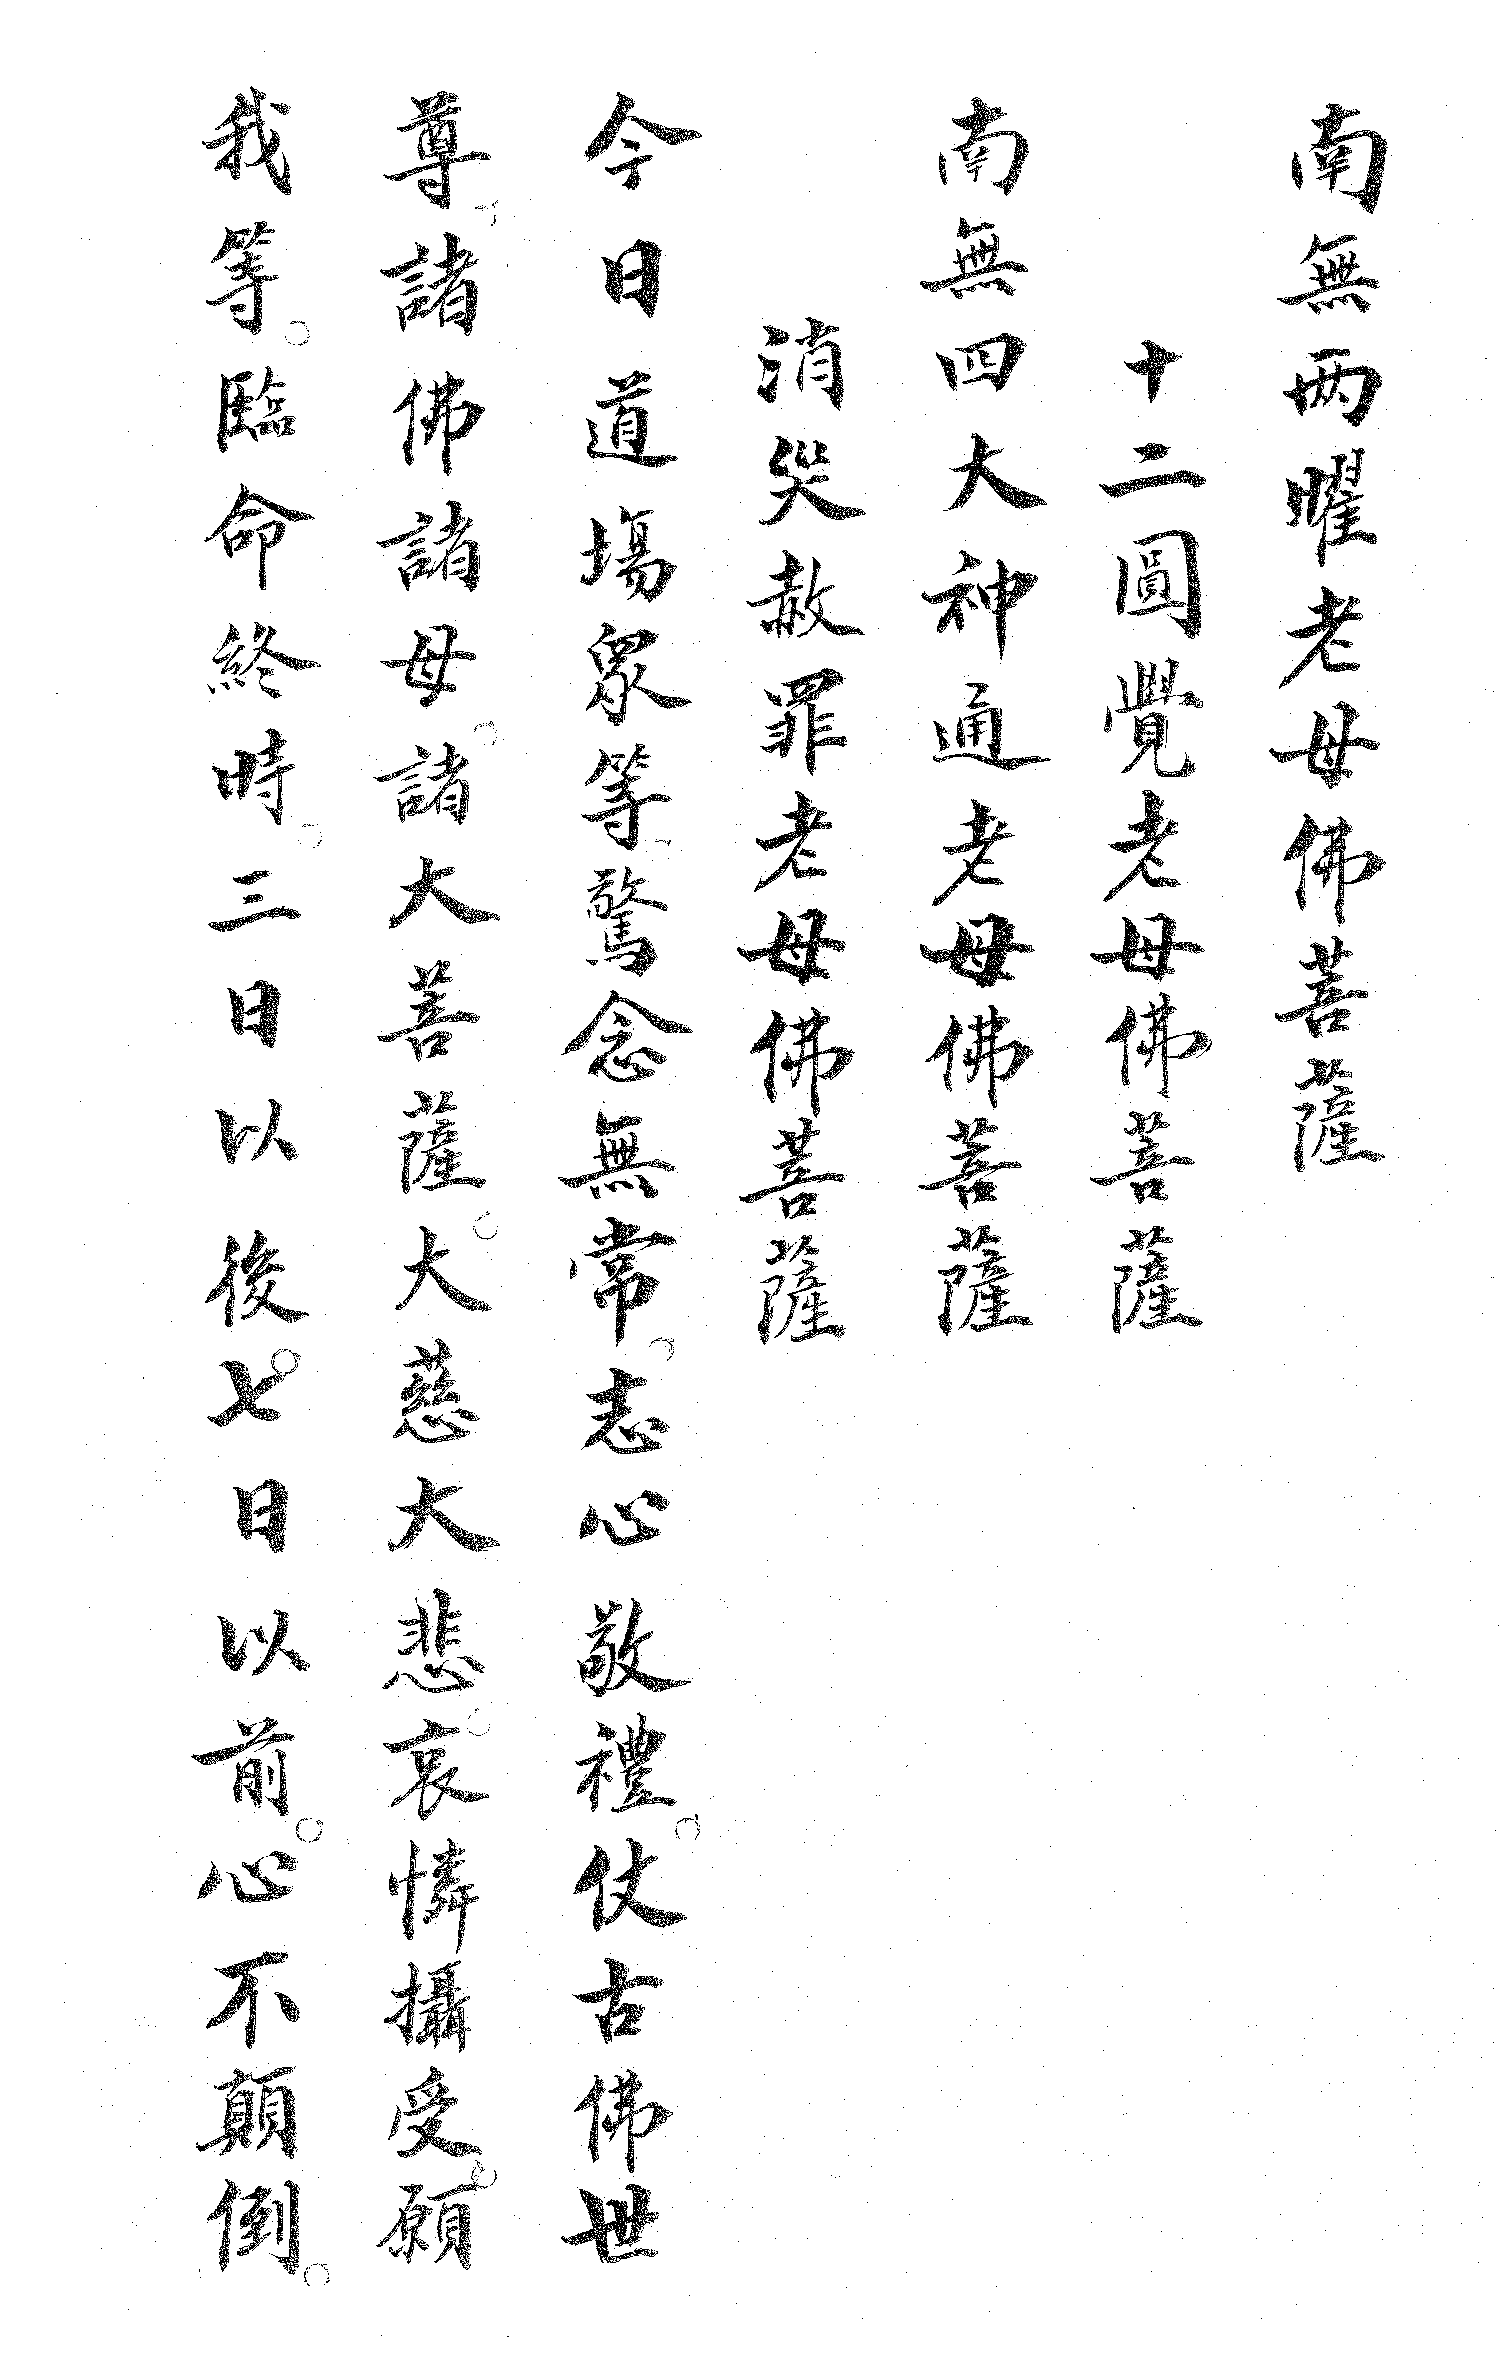 南無两曜老母佛菩薩
十二圓覺老母佛菩薩
南無四大神通老母佛菩薩
消災赦罪老母佛菩薩
今日道場眾等驚念無常。志心敬禮。仗古佛世
尊。諸佛諸母。諸大菩薩。大慈大悲。哀憐攝受。願
我等。臨命終時。三日以後。七日以前。心不顛倒。